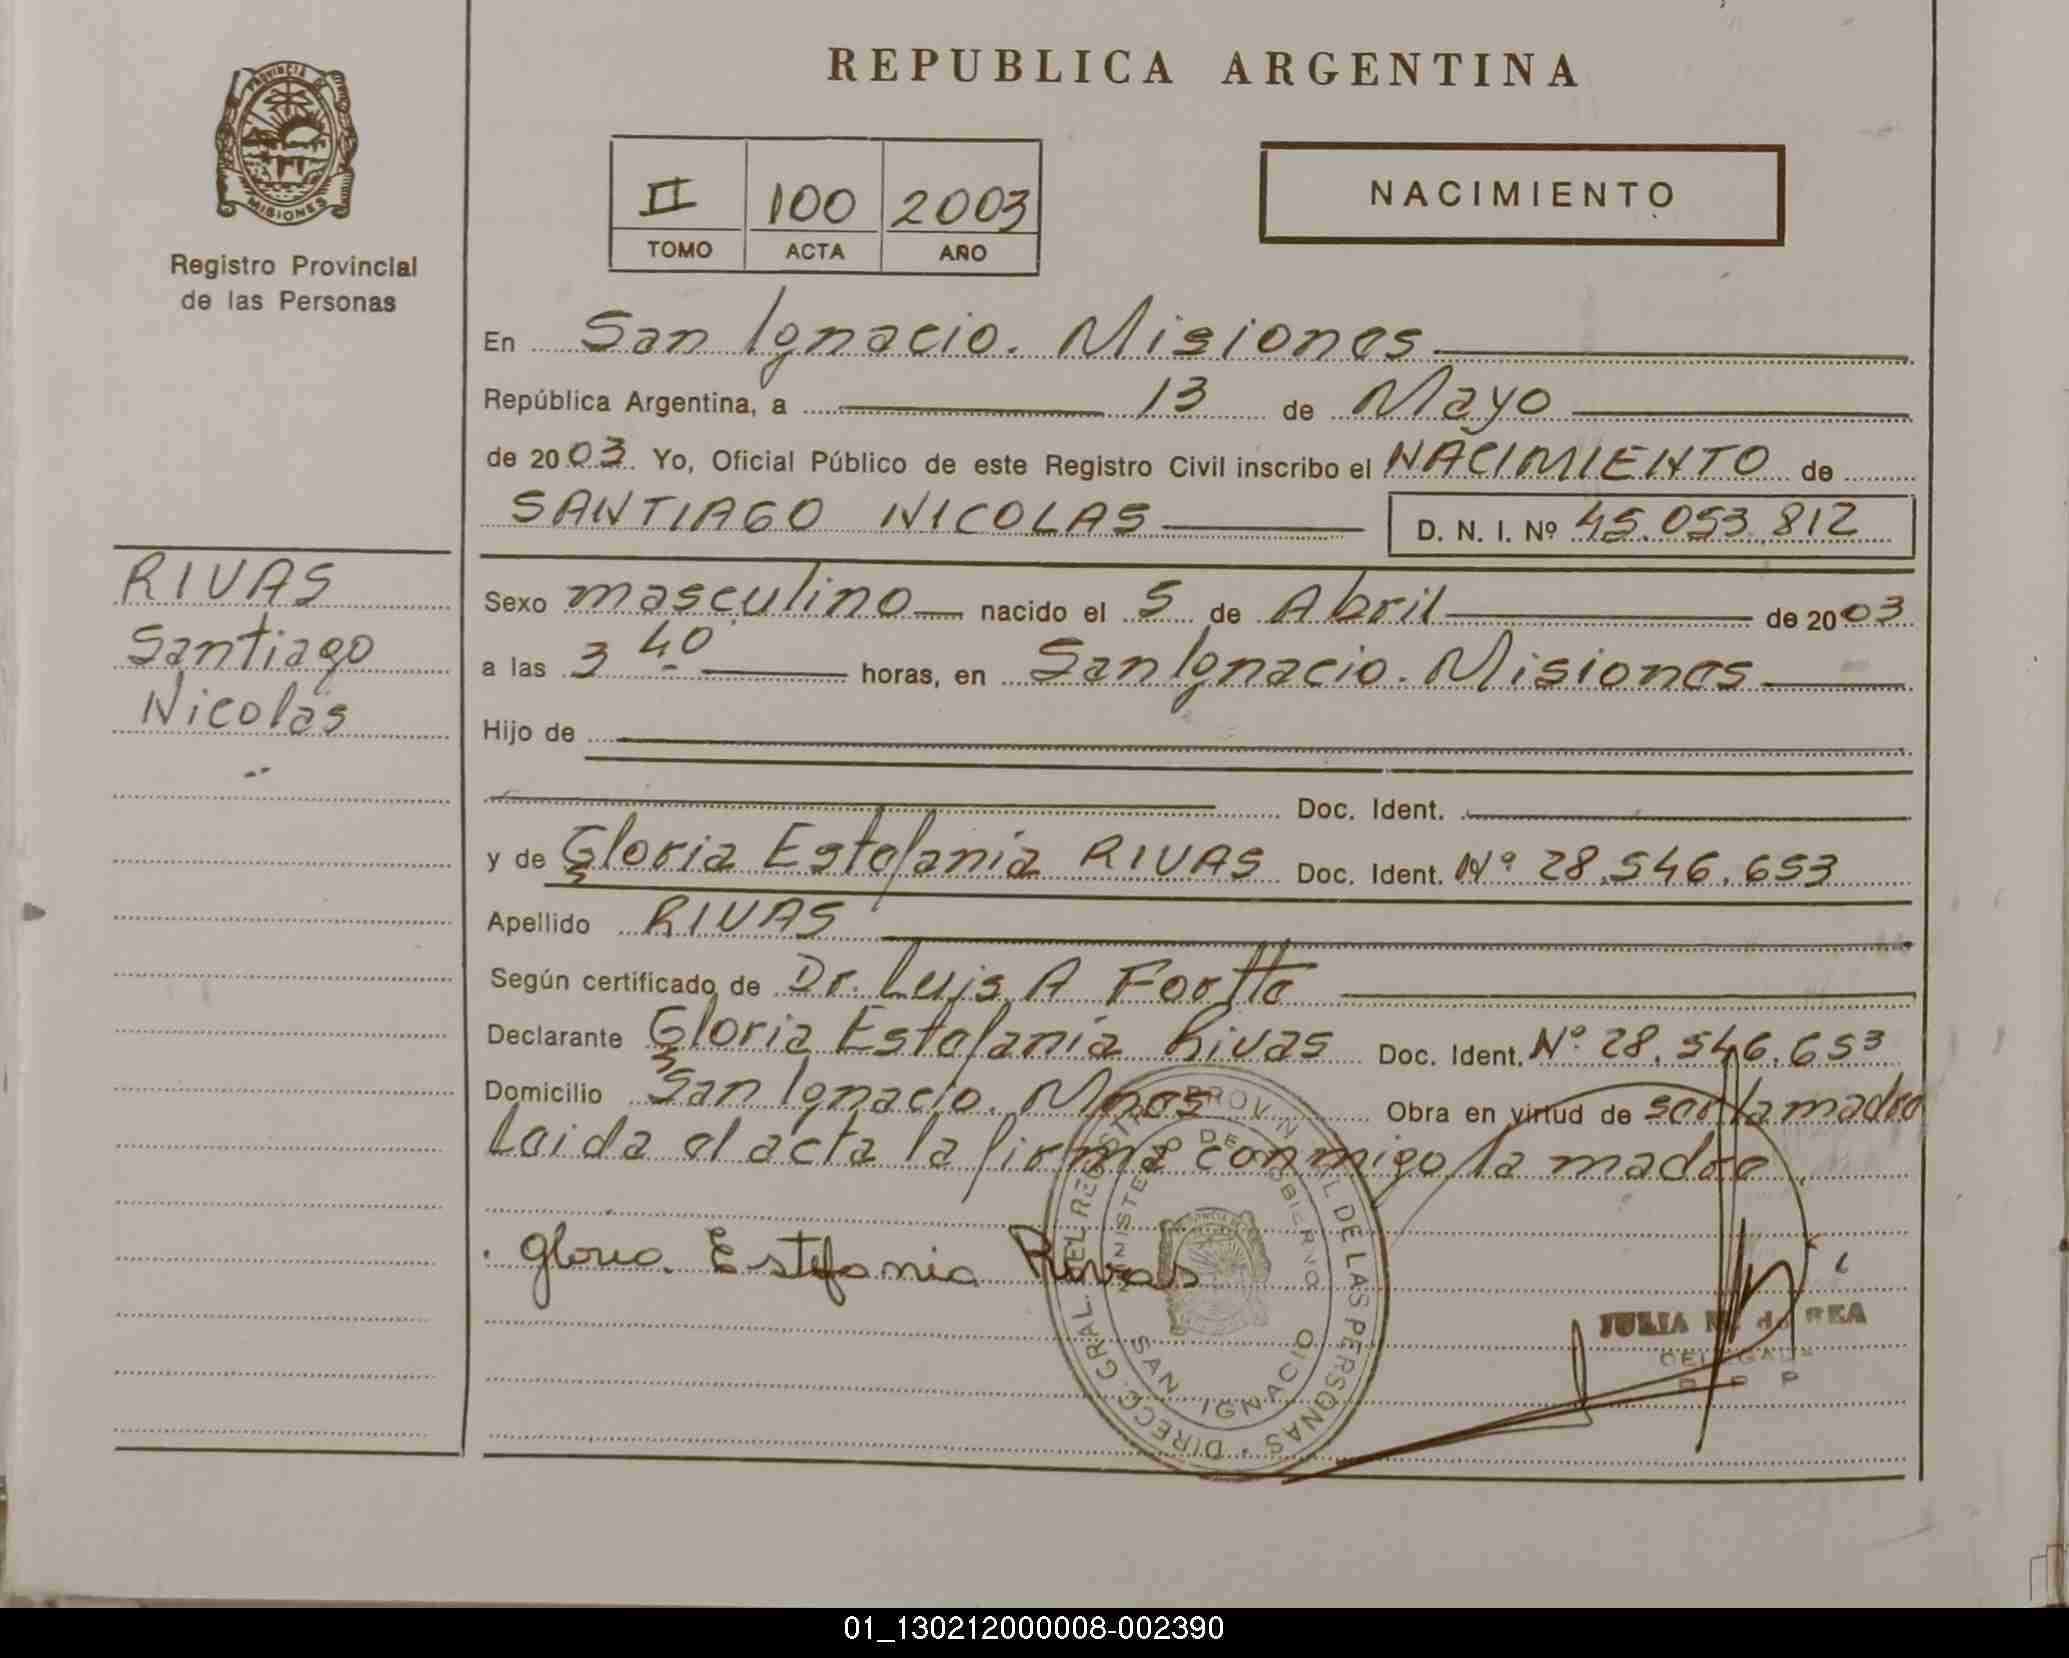 REPUBLICA ARGENTINA
PROVINCIA DE
MISIONES
Registro Provincial
de las Personas
II 100 2003
TOMO ACTA AÑO
NACIMIENTO
En San Ignacio. Misiones
República Argentina, a 13 de Mayo
de 2003. Yo, Oficial Público de este Registro Civil inscribo el NACIMIENTO de
SANTIAGO NICOLAS D. N. I. Nº 45.053.812
RIVAS
Santiago
Nicolás
Sexo masculino nacido el 5 de Abril de 2003
a las 3 40 horas, en San Ignacio. Misiones
Hijo de
Doc. Ident.
y de Gloria Estefanía RIVAS Doc. Ident. Nº 28.546.653
Apellido RIVAS
Según certificado de Dr. Luis A
Declarante Gloria Estefanía Rivas Doc. Ident. Nº 28.546.653
Domicilio San Ignacio. Mnes Obra en virtud de ser la madre
Leida el acta la firma conmigo la madre
Gloria Estefania Rivas
DIRECC. GRAL. DEL REGISTRO PROVINCIAL DE LAS PERSONAS
MINISTERIO DE GOBIERNO
SAN IGNACIO
JULIA de REA
DELEGADA
R P P
01_130212000008-002390